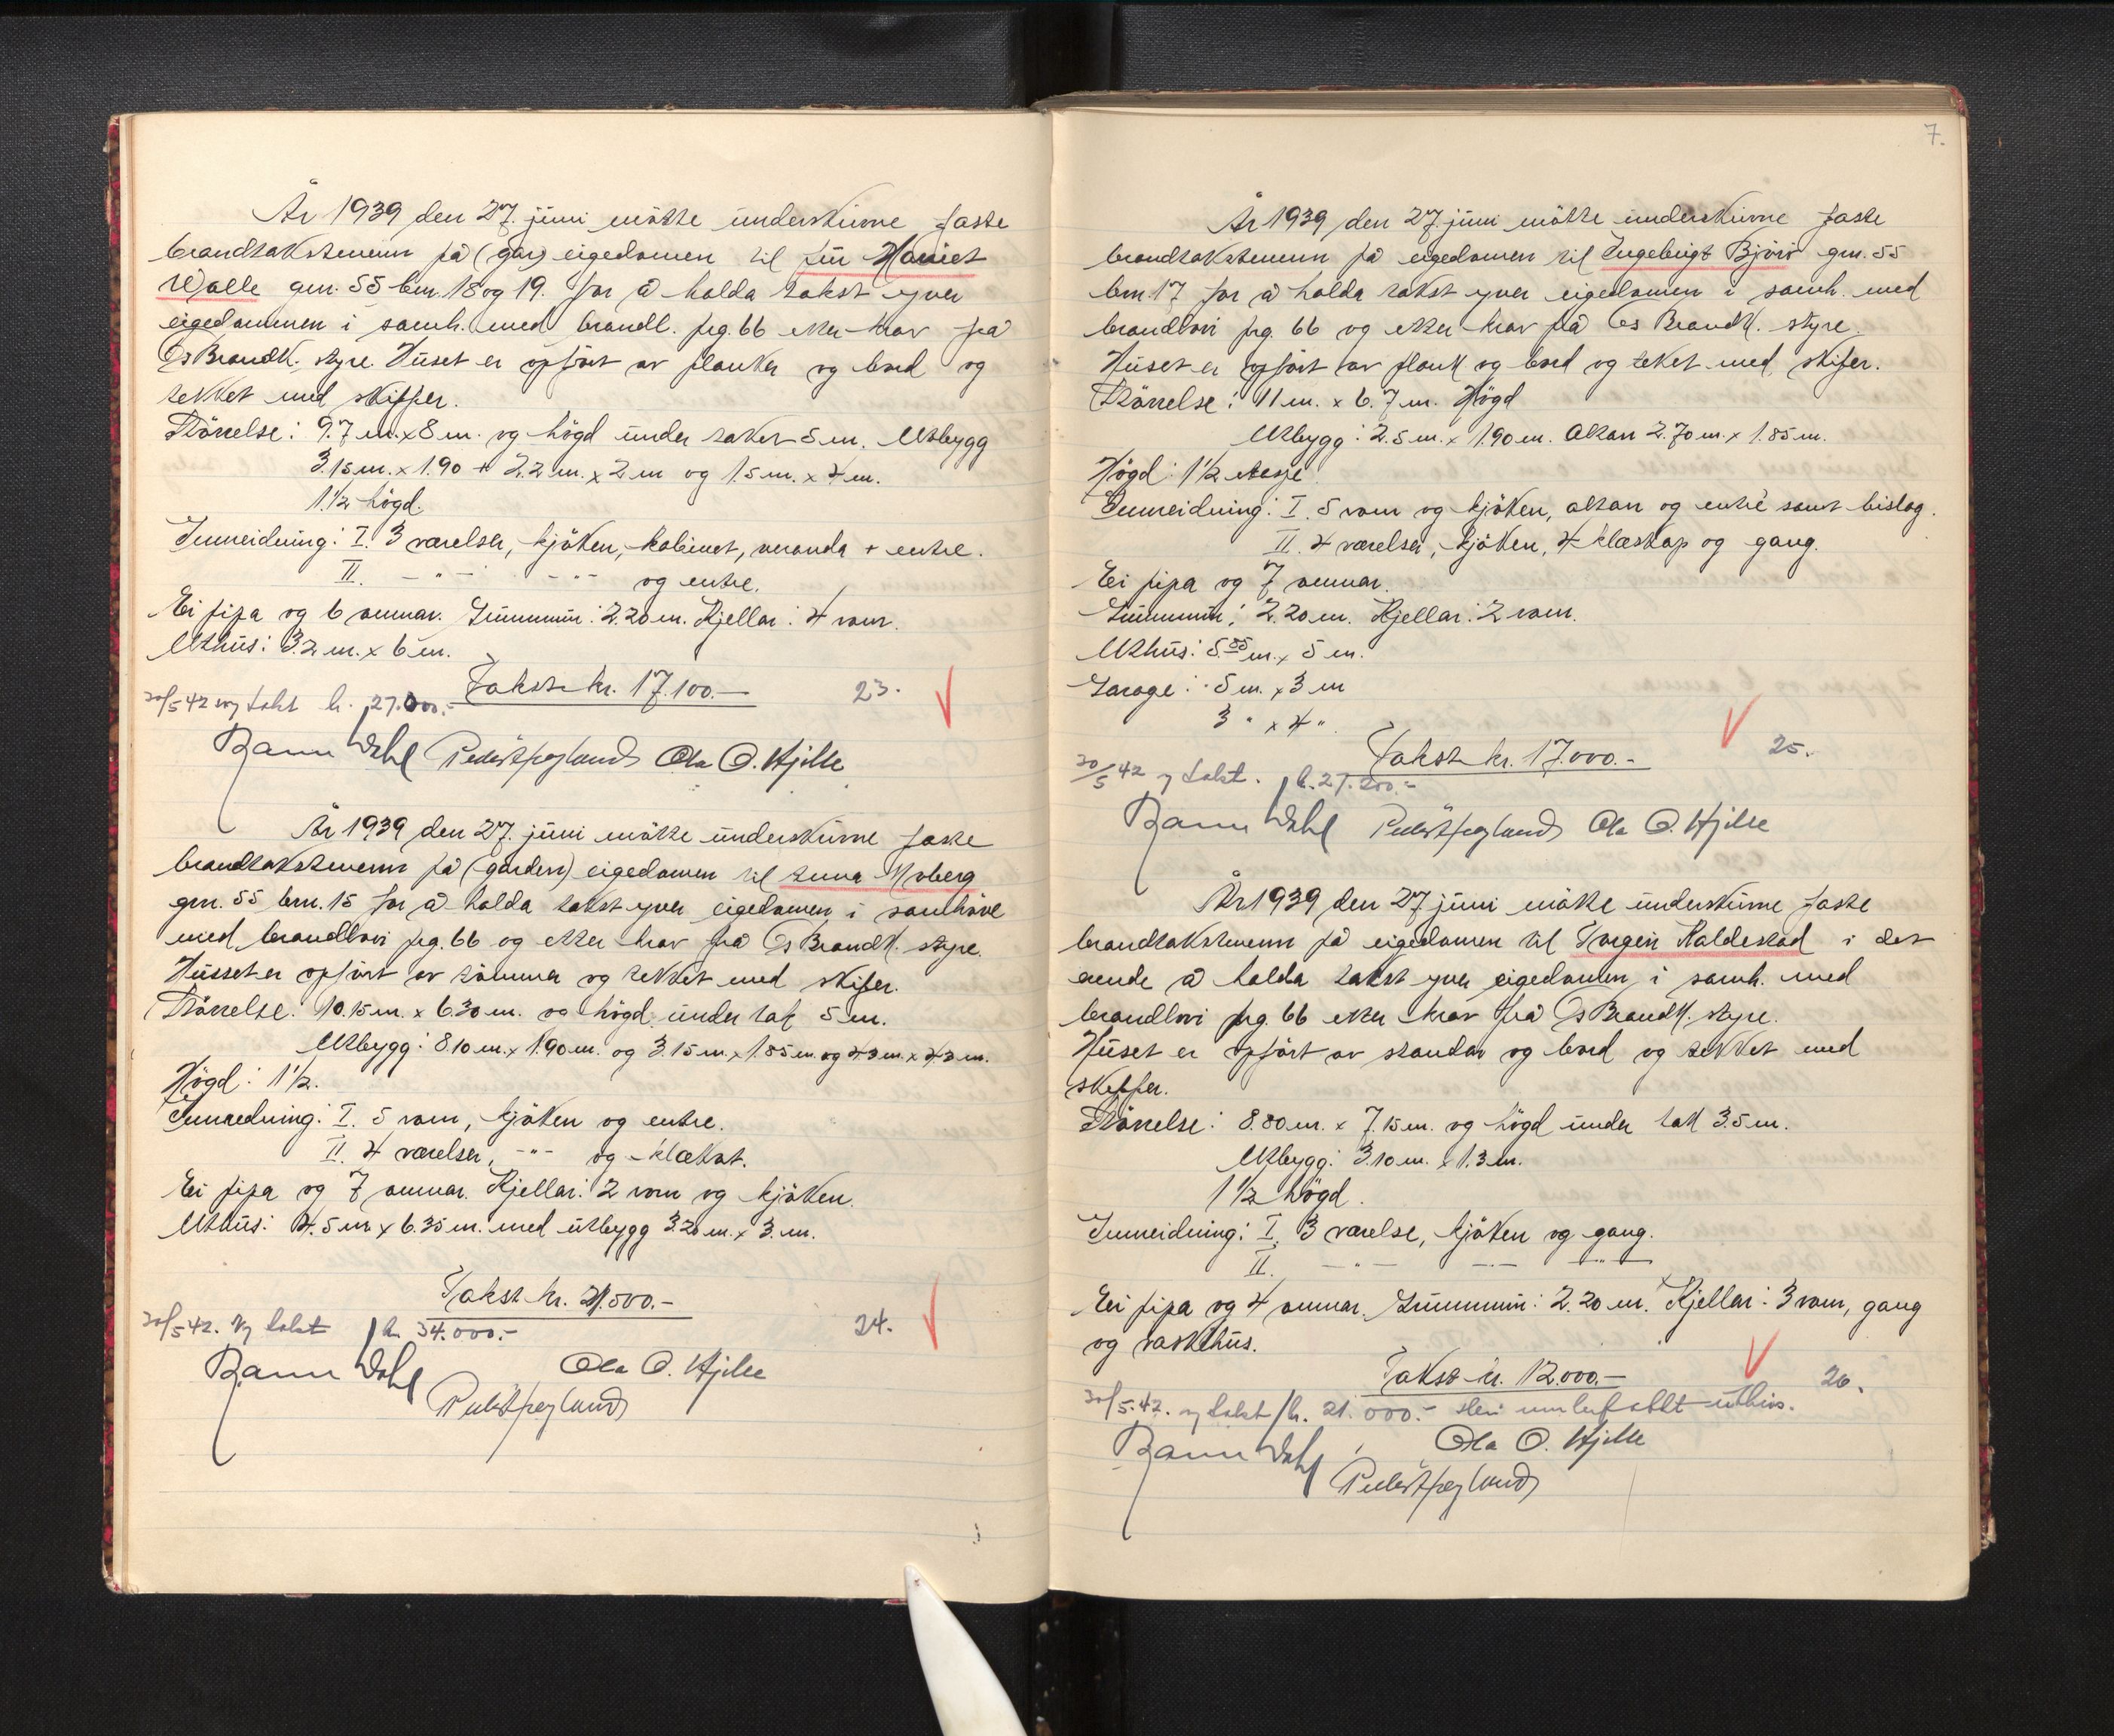 År 1939 den 27. juni møtte underskrivne faste
brandtakstmenn på (gård) eigedomen til fru Harriet
Walle gnr. 55 bnr. 18 og 19. for å halda takst yver
eigedommen i samh. med brandl. prg. 66 etter krav frå
Os Brandk. styre. Huset er opført av planker og bord og
tekket med skiffer.
Størrelse: 9.7 m. x 8 m. og högd under taket 5 m. Utbygg
3.15 m. x 1.90 + 2.2 m. x 2 m og 1.5 m. x 4 m.
1½ högd.
Innreidning: I. 3 værelser, kjöken, kabinet, veranda + entre.
II. -"- -"- og entre.
Ei pipa og 6 omnar. Grunnmur: 2.20 m. Kjellar: 4 rom.
Uthus: 3.2 m. x 6 m.
Takst kr. 17.100.-
23.
30/5 42 ny takst kr. 27.000.-
Ola O. Hjelle
År 1939 den 27. juni møtte underskrivne faste
brandtakstmenn på (garden) eigedomen til Anna Moberg
gnr. 55 bnr. 15 for å halda takst yver eigedomen i samhöve
med brandlovi prg. 66 og etter krav frå Os Brandk. styre.
Husset er opfört av tömmer og tekket med skifer.
Størrelse: 10.15 m. x 6.30 m. og högd under tak 5 m.
Utbygg: 8.10 m. x 1.90 m. og 3.15 m. x 1.85 m. og 4.3 m. x 4.3 m.
Högd: 1½.
Innredning: I. 5 rom, kjöken og entre.
II. 4 værelser, -"- og klækot.
Ei pipa og 7 omnar. Kjellar: 2 rom og kjöken.
Uthus: 4.5 m x 6.35 m. med utbygg 3.20 m. x 3. m.
Takst kr. 21.500.-
24.
30/5 42. Ny takst kr. 34.000.-
Ola O. Hjelle
7.
År 1939 den 27. juni møtte underskrivne faste
brandtakstmenn på eigedomen til Ingebrigt Björo gnr. 55
bnr. 17 for å halda takst yver eigedomen i samh. med
brandlovi prg. 66 og etter krav frå Os Brandk. styre.
Huset er opfört av plank og bord og teket med skifer.
Størrelse: 11 m. x 6.7 m. Högd
Utbygg: 2.5 m. x 1.90 m. Altan 2.70 m. x 1.85 m.
Högd: 1½ etasje
Innreidning: I. 5 rom og kjöken, altan og entré samt bislag.
II. 4 værelser, kjöken, 4 klæskap og gang.
Ei pipa og 7 omnar.
Grunnmur: 2.20 m. Kjellar: 2 rom.
Uthus: 5.85 m. x 5 m.
Garage: 5 m. x 3 m
3 " x 4 ".
Takst kr. 17.000.-
25.
30/5 42 ny takst. kr. 27.200.-
Ola O. Hjelle
År 1939 den 27. juni møtte underskrivne faste
brandtakstmenn på eigedomen til Torgeir Haldestad i det
ærende å halda takst yver eigedomen i samh. med
brandlovi prg. 66 etter krav frå Os Brandk. styre.
Huset er opfört av standar og bord og tekket med
skiffer.
Størrelse: 8.80 m. x 7.15 m. og högd under tak 3.5 m.
Utbygg: 3.10 m. x 1.3 m.
1½ högd.
Innreidning: I. 3 værelse, kjöken og gang.
II. -"- -"- -"-
Ei pipa og 4 omnar. Grunnmur: 2.20 m. Kjellar: 3 rom, gang
og vaskehus.
Takst kr. 12.000.-
26.
30/5.42. ny takst kr. 21.000.- Heri innbefattet uthus.
Ola O. Hjelle